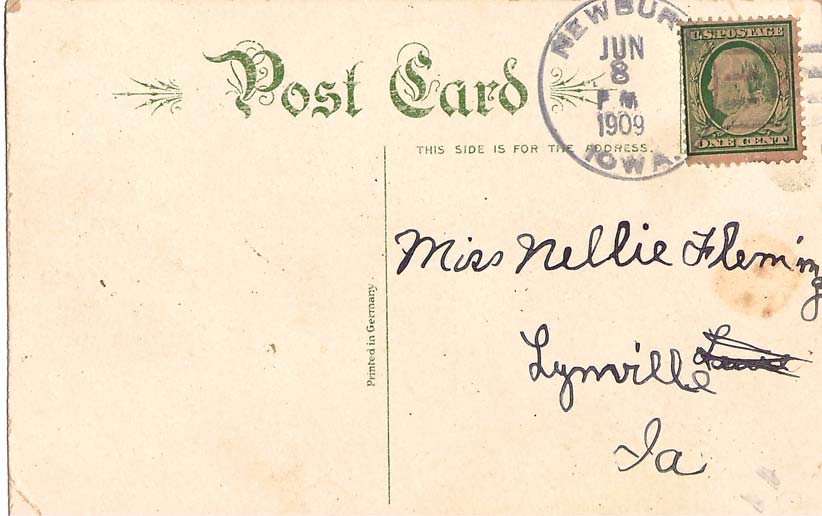 Post Card
THIS SIDE IS FOR THE ADDRESS.
NEWBUR
JUN
8
PM
1909
IOWA.
U.S. POSTAGE
ONE CENT
Miss Nellie Fleming
Lynville
Ia
Printed in Germany